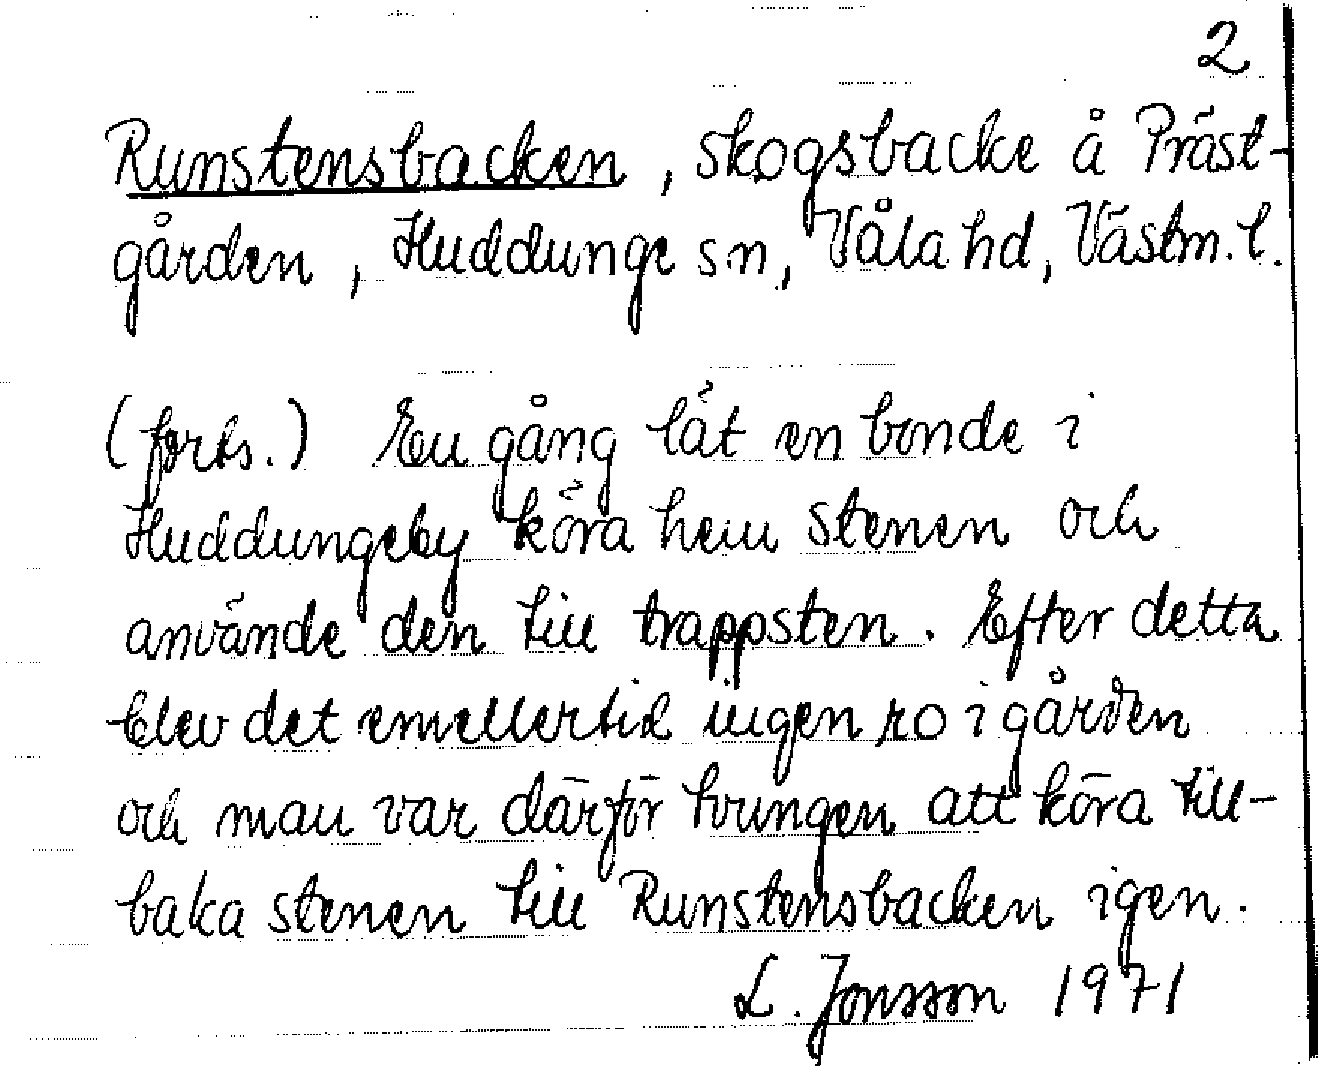 2
Runstensbacken, skogsbacke å Präst-
gården, Huddunge sn, Våla hd, Västm. l.
(forts.) En gång lät en bonde i
Huddungeby köra hem stenen och
använde den till trappsten. Efter detta
blev det emellertid ingen ro i gården
och man var därför tvungen att köra till-
baka stenen till Runstensbacken igen.
L. Jonsson 1971